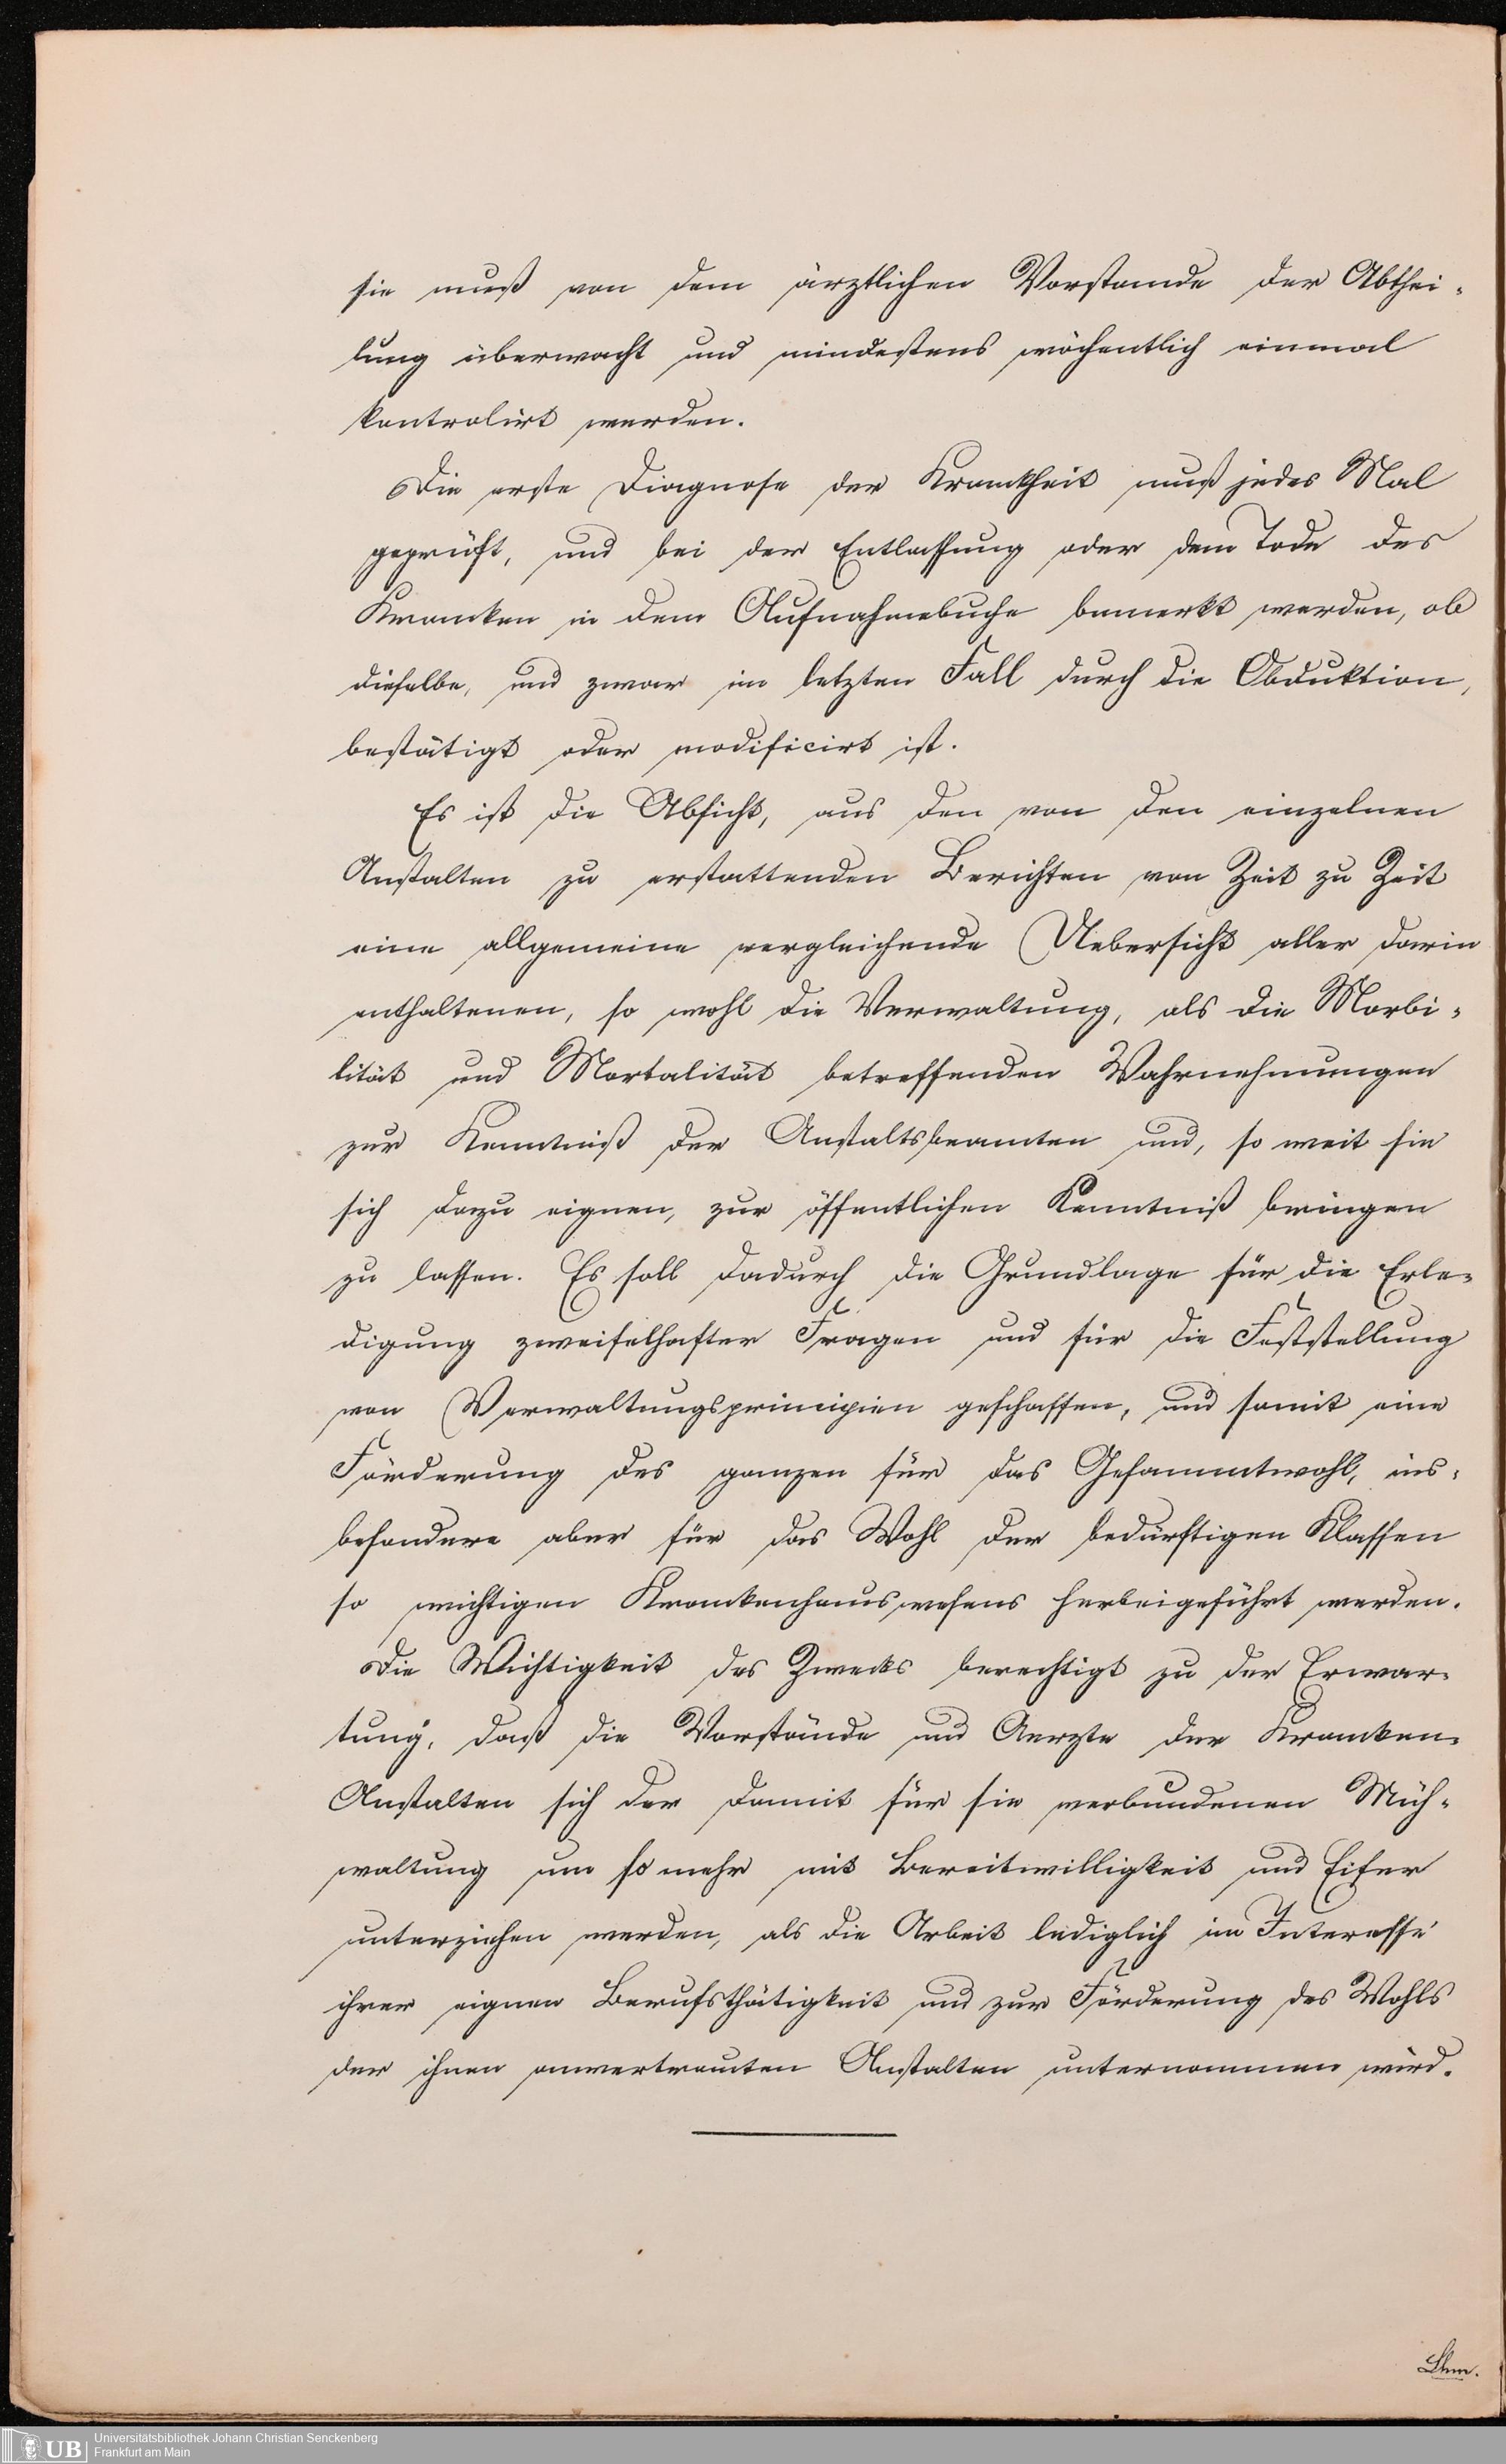 sie muß von dem ärztlichen Vorstande der Abthei-
lung überwacht und mindestens wöchentlich einmal
kontrolirt werden.
Die erste Diagnose der Krankheit muß jedes Mal
geprüft, und bei der Entlassung oder dem Tode des
Kranken in dem Aufnahmebuche bemerkt werden, ob
dieselbe, und zwar im letzten Fall durch die Obduktion,
bestätigt oder modificirt ist.
Es ist die Absicht, aus den von den einzelnen
Anstalten zu erstattenden Berichten von Zeit zu Zeit
eine allgemeine vergleichende Uebersicht aller darin
enthaltenen, so wohl die Verwaltung, als die Morbi-
lität und Mortalität betreffenden Wahrnehmungen
zur Kenntniß der Anstaltsbeamten und, so weit sie
sich dazu eignen, zur öffentlichen Kenntniß bringen
zu lassen. Es soll dadurch die Grundlage für die Erle-
digung zweifelhafter Fragen und für die Feststellung
von Verwaltungsprincipien geschaffen, und somit eine
Förderung des ganzen für das Gesammtwohl, ins-
besondere aber für das Wohl der bedürftigen Klassen
so wichtigen Krankenhauswesens herbeigeführt werden.
Die Wichtigkeit des Zwecks berechtigt zu der Erwar-
tung, daß die Vorstände und Aerzte der Kranken-
Anstalten sich der damit für sie verbundenen Müh-
waltung um so mehr mit Bereitwilligkeit und Eifer
unterziehen werden, als die Arbeit lediglich im Interesse
ihrer eignen Berufsthätigkeit und zur Förderung des Wohls
der ihnen anvertrauten Anstalten unternommen wird.
Lhm.
UB
Universitätsbibliothek Johann Christian Senckenberg
Frankfurt am Main